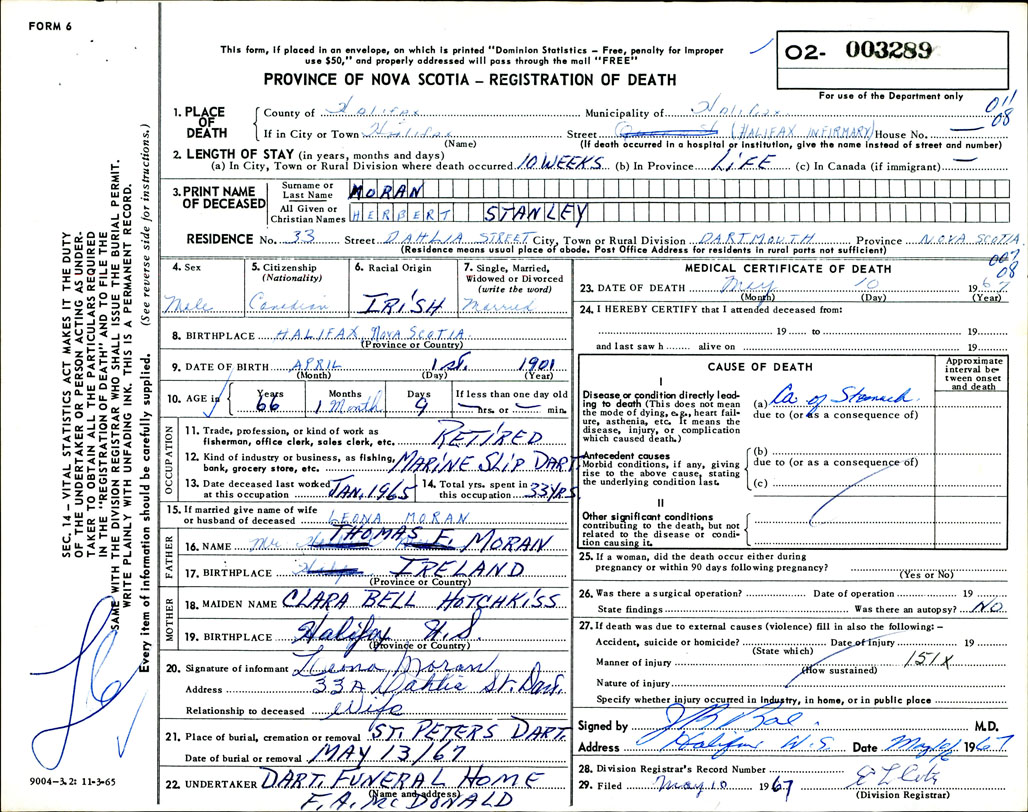 FORM 6
This form, if placed in an envelope, on which is printed "Dominion Statistics – Free, penalty for improper
use $50," and properly addressed will pass through the mail "FREE"
PROVINCE OF NOVA SCOTIA – REGISTRATION OF DEATH
02- 003289
For use of the Department only
011
08
1. PLACE OF DEATH
County of Halifax Municipality of Halifax
If in City or Town Halifax Street (HALIFAX INFIRMARY) House No. —
(Name) (If death occurred in a hospital or institution, give the name instead of street and number)
2. LENGTH OF STAY (in years, months and days)
(a) In City, Town or Rural Division where death occurred 10 WEEKS (b) In Province LIFE (c) In Canada (if immigrant) —
3. PRINT NAME OF DECEASED
Surname or Last Name MORAN
All Given or Christian Names HERBERT STANLEY
RESIDENCE No. 33 Street DAHLIA STREET City, Town or Rural Division DARTMOUTH Province NOVA SCOTIA
(Residence means usual place of abode. Post Office Address for residents in rural parts not sufficient)
007
08
4. Sex Male
5. Citizenship (Nationality) Canadian
6. Racial Origin IRISH
7. Single, Married, Widowed or Divorced (write the word) Married
8. BIRTHPLACE HALIFAX NOVA SCOTIA
(Province or Country)
9. DATE OF BIRTH APRIL 1st. 1901
(Month) (Day) (Year)
10. AGE in Years 66 Months 1 Month Days 9 If less than one day old — hrs. or — min.
OCCUPATION
11. Trade, profession, or kind of work as fisherman, office clerk, sales clerk, etc. RETIRED
12. Kind of industry or business, as fishing, bank, grocery store, etc. MARINE SLIP DART.
13. Date deceased last worked at this occupation JAN. 1965
14. Total yrs. spent in this occupation 33 YRS
15. If married give name of wife or husband of deceased LEONA MORAN
FATHER
16. NAME Mr. THOMAS F. MORAN
17. BIRTHPLACE IRELAND
(Province or Country)
MOTHER
18. MAIDEN NAME CLARA BELL HOTCHKISS
19. BIRTHPLACE Halifax N.S.
(Province or Country)
20. Signature of informant Leona Moran
Address 33A Dahlia St. Dart.
Relationship to deceased Wife
21. Place of burial, cremation or removal ST. PETERS DART.
Date of burial or removal MAY 13/67
22. UNDERTAKER DART. FUNERAL HOME
(Name and address)
F. A. McDONALD
MEDICAL CERTIFICATE OF DEATH
23. DATE OF DEATH May 10 1967
(Month) (Day) (Year)
24. I HEREBY CERTIFY that I attended deceased from:
19 to 19
and last saw h alive on 19
CAUSE OF DEATH
Approximate interval between onset and death
I
Disease or condition directly leading to death (This does not mean the mode of dying, e.g., heart failure, asthenia, etc. It means the disease, injury, or complication which caused death.)
(a) Ca of Stomach
due to (or as a consequence of)
Antecedent causes
Morbid conditions, if any, giving rise to the above cause, stating the underlying condition last.
(b)
due to (or as a consequence of)
(c)
II
Other significant conditions contributing to the death, but not related to the disease or condition causing it.
25. If a woman, did the death occur either during pregnancy or within 90 days following pregnancy?
(Yes or No)
26. Was there a surgical operation? Date of operation 19
State findings Was there an autopsy? NO
27. If death was due to external causes (violence) fill in also the following: –
Accident, suicide or homicide? Date of Injury 19
(State which)
Manner of injury 151X
(How sustained)
Nature of injury
Specify whether injury occurred in Industry, in home, or in public place
Signed by M.D.
Address Halifax N.S. Date 1967.
28. Division Registrar's Record Number
29. Filed May 10 1967
(Division Registrar)
SEC. 14 – VITAL STATISTICS ACT MAKES IT THE DUTY
OF THE UNDERTAKER OR PERSON ACTING AS UNDER-
TAKER TO OBTAIN ALL THE PARTICULARS REQUIRED
IN THE "REGISTRATION OF DEATH" AND TO FILE THE
SAME WITH THE DIVISION REGISTRAR WHO SHALL ISSUE THE BURIAL PERMIT.
WRITE PLAINLY WITH UNFADING INK. THIS IS A PERMANENT RECORD.
Every item of information should be carefully supplied. (See reverse side for instructions.)
9004-3.2: 11-3-65